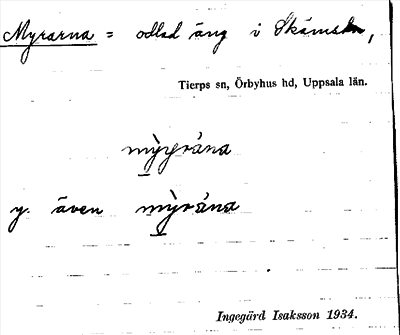 Myrarna = odlad äng i Skämsta,
Tierps sn, Örbyhus hd, Uppsala län.
mỳyrána
y. även mỳrána
Ingegärd Isaksson 1934.